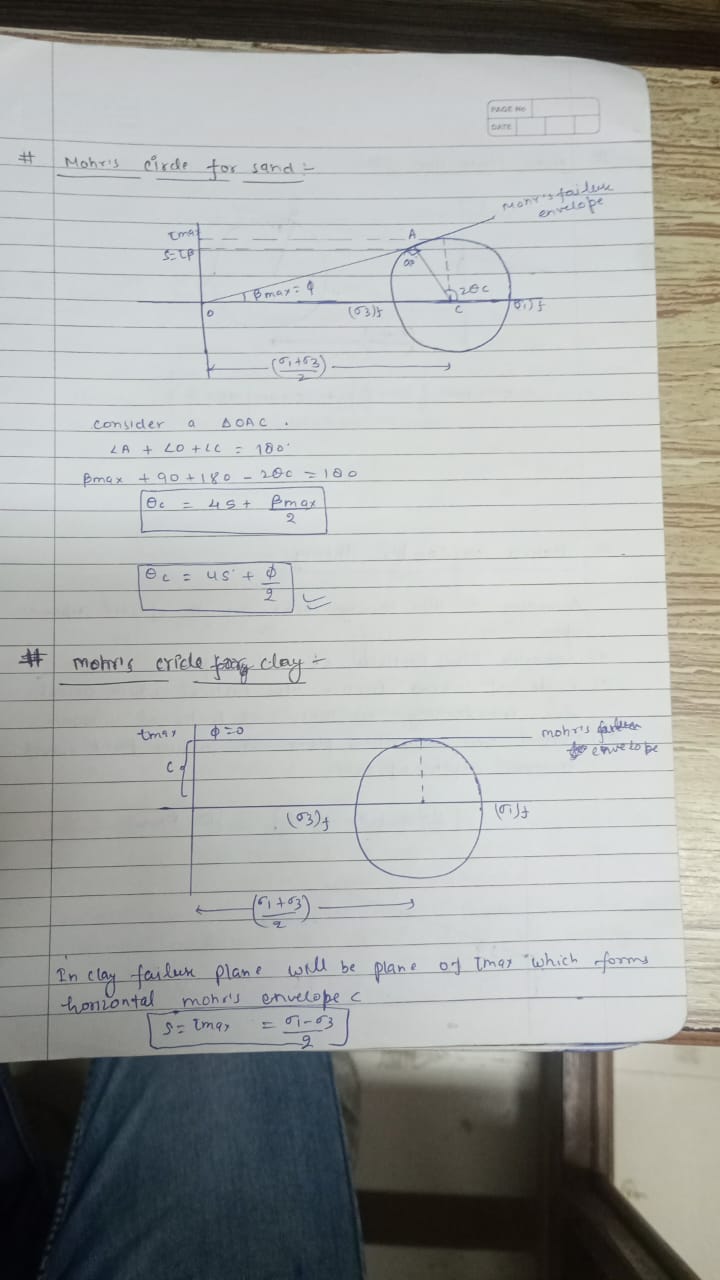 PAGE No
DATE
# Mohr's circle for sand :-
Mohr's failure
envelope
τmax
S=τβ
A
90
βmax = φ
2θc
O
(σ3)f
C
(σ1)f
(σ1+σ3)
2
consider a ΔOAC .
∠A + ∠O + ∠C = 180°
βmax + 90 + 180 - 2θc = 180
θc = 45 + βmax
2
θc = 45° + φ
2
# mohr's cricle for clay :-
τmax
φ=0
mohr's failure
envelope
C
(σ3)f
(σ1)f
(σ1+σ3)
2
In clay failure plane will be plane of τmax which forms
horizontal mohr's envelope c
S = τmax = σ1-σ3
2